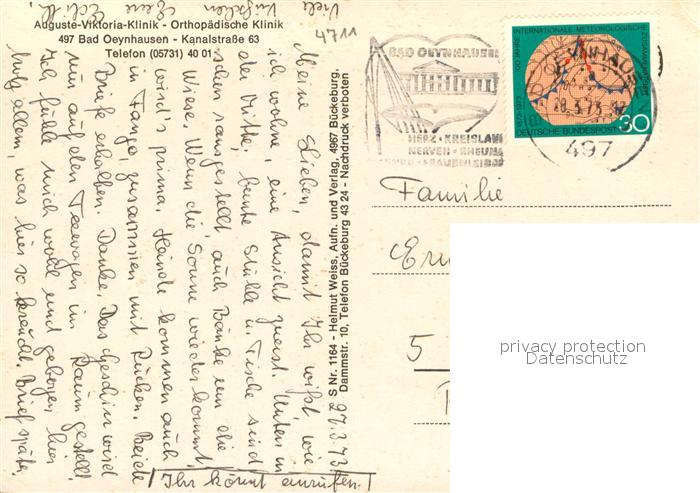 Auguste-Viktoria-Klinik · Orthopädische Klinik
497 Bad Oeynhausen - Kanalstraße 63
Telefon (05731) 40 01
4711
S Nr. 1164 - Helmut Weiss, Aufn. und Verlag, 4967 Bückeburg,
Dammstr. 10, Telefon Bückeburg 43 24 - Nachdruck verboten
27.3.73
Meine Lieben, damit Ihr wißt, wie
ich wohne, eine Ansicht zuerst. Unten in
der Mitte, bunte Stühle u. Tische sind
schon rausgestellt, auch Bänke um die
Wiese. Wenn die Sonne wieder kommt,
wird's prima. Hände kommen auch
in Fango, zusammen mit Rücken. Beide
Briefe erhalten. Danke. Das Geschirr wird
nun auf den Teewagen im Raum gestellt.
Ich fühle mich wohl und geborgen hier
trotz allem, was hier so kreucht. Brief später.
Ihr könnt anrufen!
Viele
Eure Edith
BAD OEYNHAUSEN
HERZ · KREISLAUF
NERVEN · RHEUMA
FRAUENLEIDEN
INTERNATIONALE METEOROLOGISCHE ZUSAMMENARBEIT
100 JAHRE
1873-1973
DEUTSCHE BUNDESPOST
30
BAD OEYNHAUSEN
28.3.73
497
Familie
5
privacy protection
Datenschutz